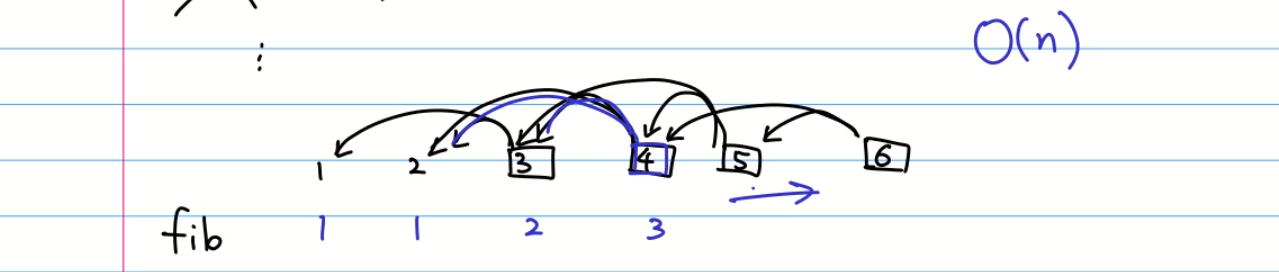 O(n)
⋮
1 2 3 4 5 6
fib 1 1 2 3